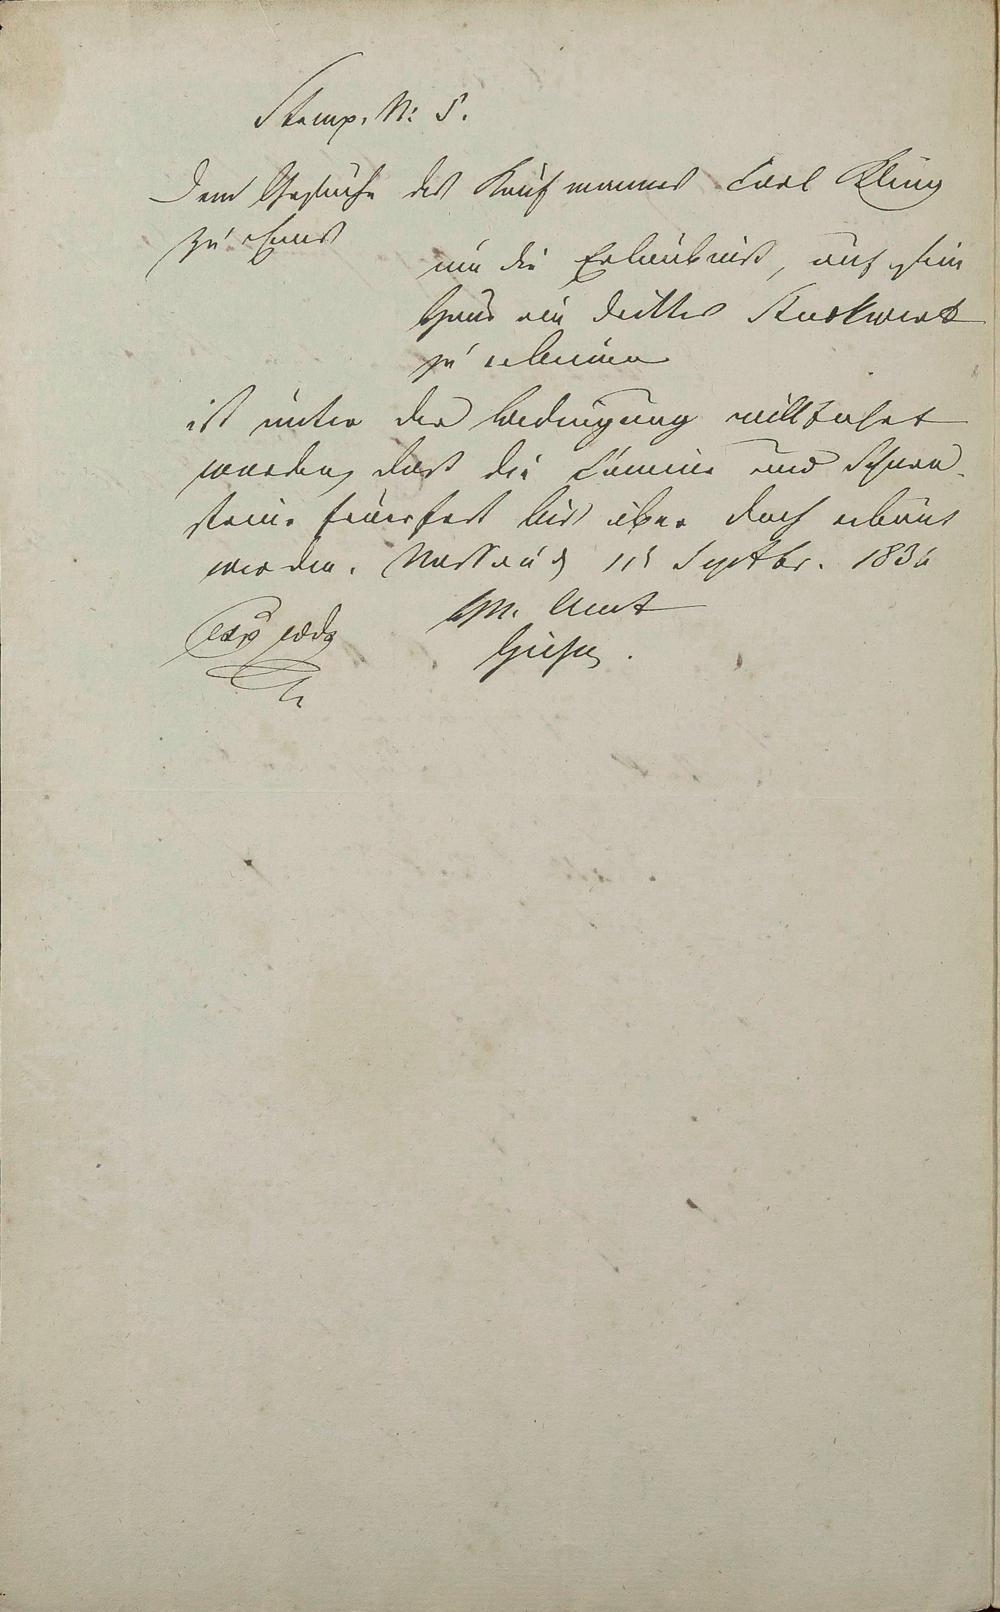 Stemp. N: 5.
Dem Gesuche des Kaufmannes Carl Kling
zu Ems
um die Erlaubniß, auf sein
Haus ein drittes Stockwerk
zu erbauen
ist unter der Bedingung willfahrt
worden, daß die Camine und Schorn-
steine feuerfest bis über Dach erbaut
werden. Nassau d 11t Septbr. 183
Amt